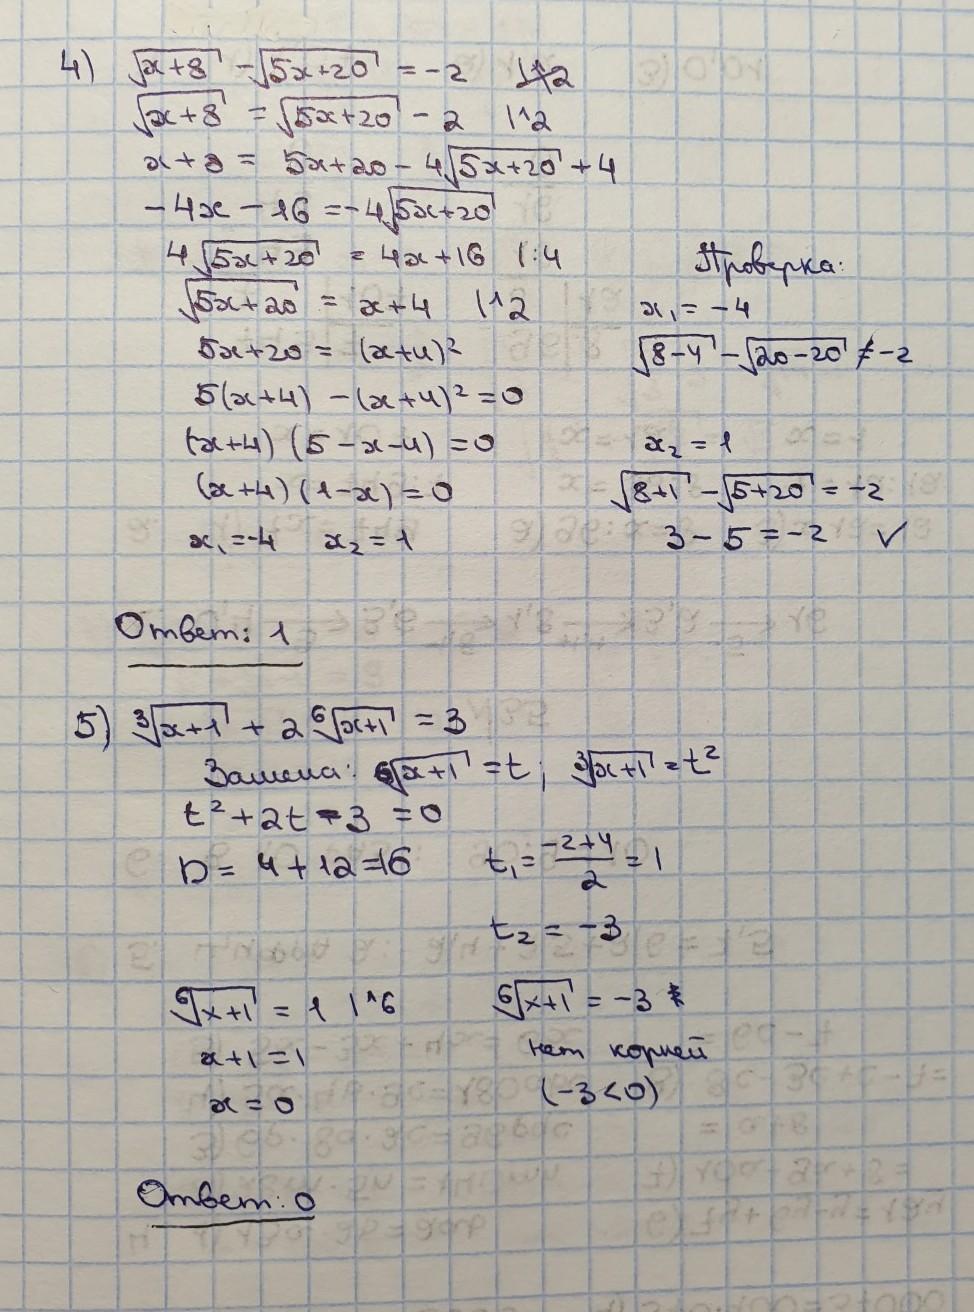 4) √(x+8) - √(5x+20) = -2 |^2
√(x+8) = √(5x+20) - 2 |^2
x+8 = 5x+20 - 4√(5x+20) + 4
-4x - 16 = -4√(5x+20)
4√(5x+20) = 4x+16 |:4
√(5x+20) = x+4 |^2
5x+20 = (x+4)²
5(x+4) - (x+4)² = 0
(x+4)(5-x-4) = 0
(x+4)(1-x) = 0
x₁=-4 x₂=1
Проверка:
x₁ = -4
√(8-4) - √(20-20) ≠ -2
x₂ = 1
√(8+1) - √(5+20) = -2
3 - 5 = -2 ✓
Ответ: 1
5) ∛(x+1) + 2 ⁶√(x+1) = 3
Замена: ⁶√(x+1) = t; ∛(x+1) = t²
t² + 2t - 3 = 0
D = 4+12=16
t₁ = (-2+4)/2 = 1
t₂ = -3
⁶√(x+1) = 1 |^6
x+1 = 1
x = 0
⁶√(x+1) = -3
нет корней
(-3<0)
Ответ: 0